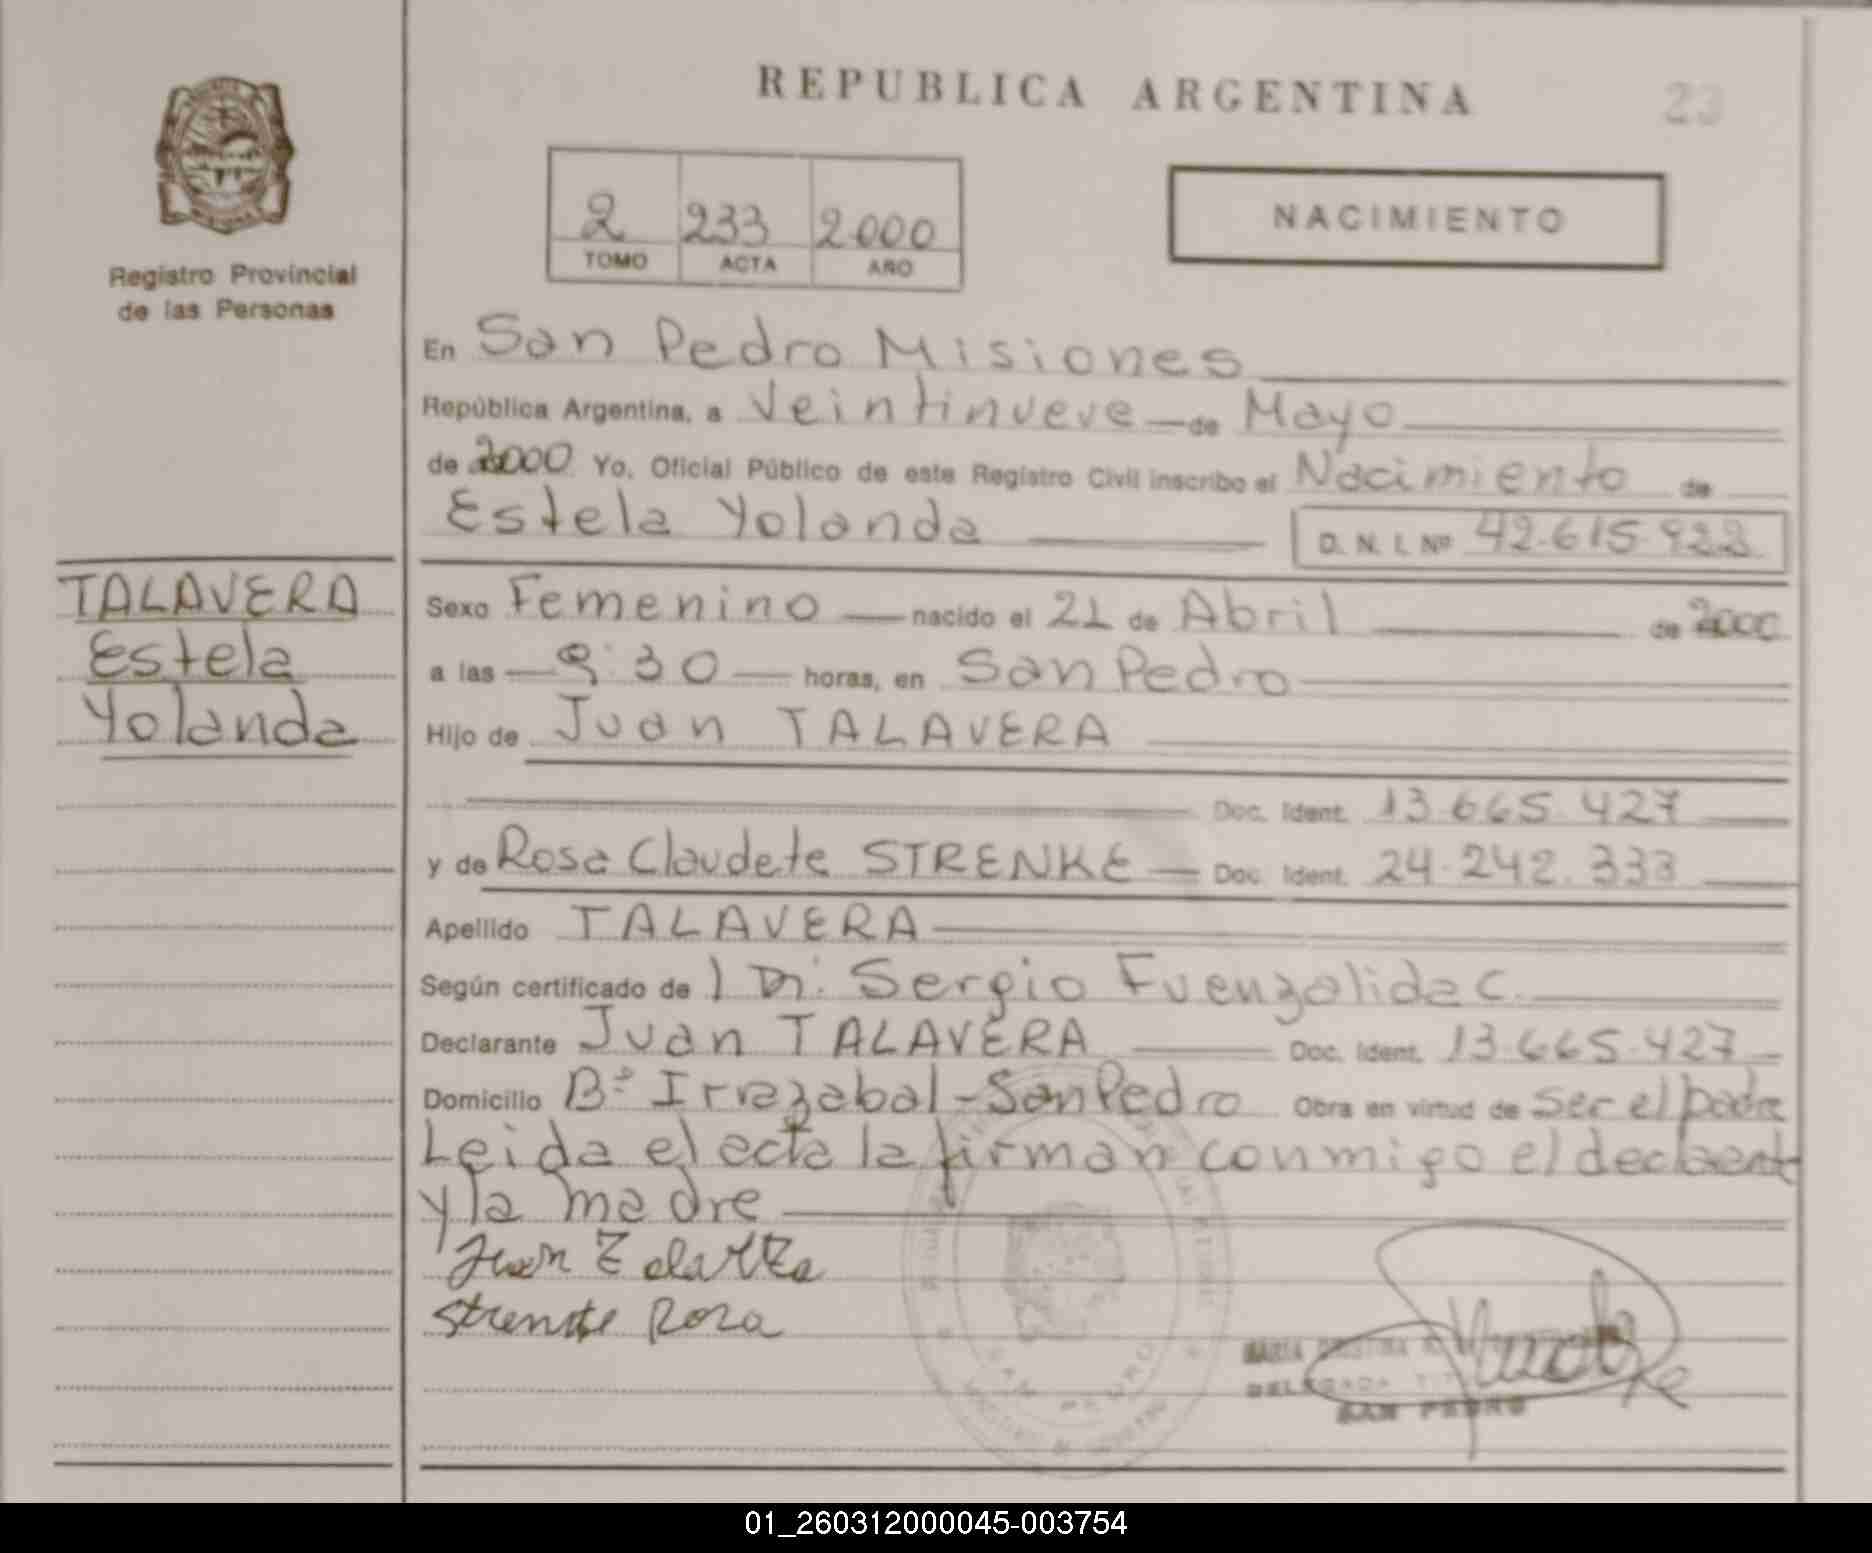 REPUBLICA ARGENTINA
23
Registro Provincial
de las Personas
2 233 2000
TOMO ACTA AÑO
NACIMIENTO
En San Pedro Misiones
República Argentina, a Veintinueve de Mayo
de 2000 Yo, Oficial Público de este Registro Civil inscribo el Nacimiento de
Estela Yolanda D. N. I. Nº 42.615.922
TALAVERA
Estela
Yolanda
Sexo Femenino nacido el 21 de Abril de 2000
a las 9:30 horas, en San Pedro
Hijo de Juan TALAVERA
Doc. Ident. 13.665.427
y de Rosa Claudete STRENKE Doc. Ident. 24.242.333
Apellido TALAVERA
Según certificado de Sergio Fuenzalida C.
Declarante Juan TALAVERA Doc. Ident. 13.665.427
Domicilio Bº Irrazabal - San Pedro Obra en virtud de ser el padre
Leida el acta la firman conmigo el declarante
y la madre
Juan
Rosa
SAN PEDRO
DELEGADA
SAN PEDRO
01_260312000045-003754